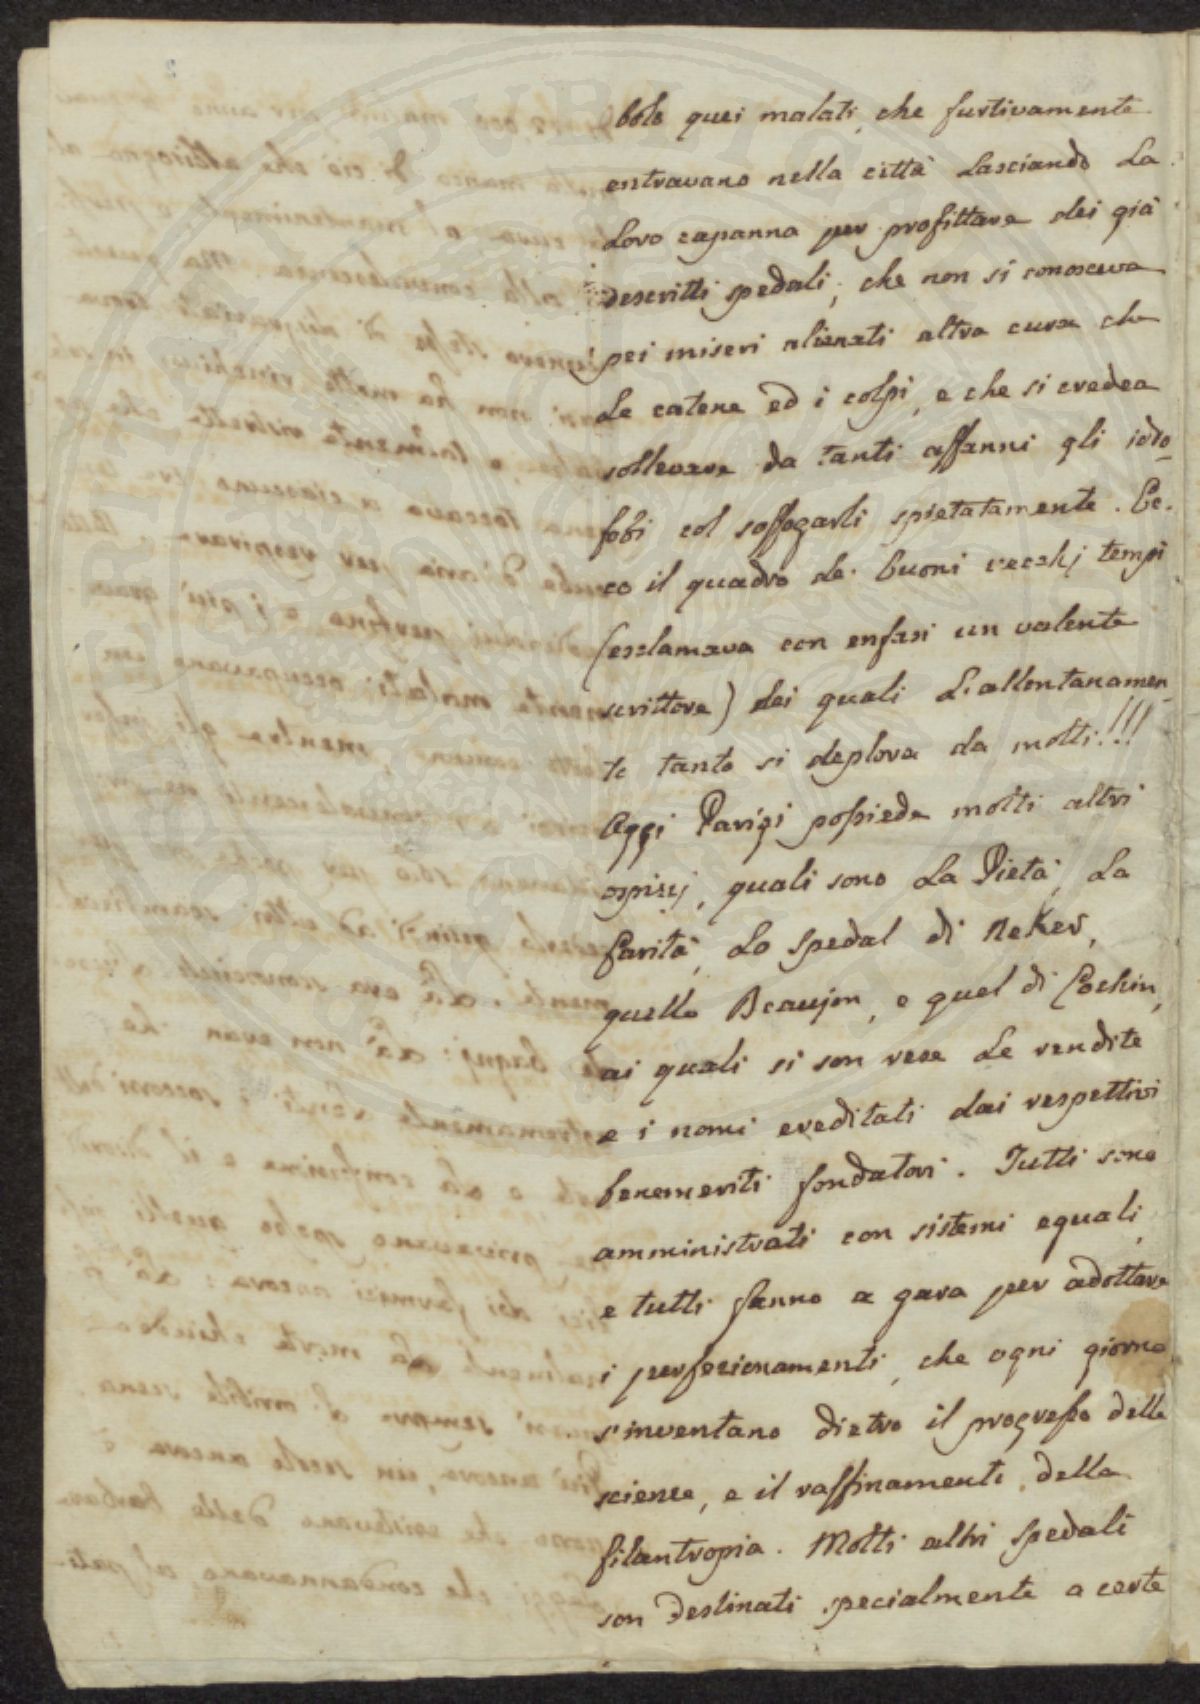 bolo quei malati, che furtivamente
entravano nella città lasciando la
loro capanna per profittare dei già
descritti spedali; che non si conosceva
pei miseri alienati altra cura che
le catene ed i colpi, e che si credea
sollevare da tanti affanni gli idro-
fobi col soffogarli spietatamente. Ec-
co il quadro de' buoni vecchj tempi
(esclamava con enfasi un valente
scrittore) dei quali l'allontanamen-
to tanto si deplora da molti!!!
Oggi Parigi possiede molti altri
ospizj, quali sono la Pietà, la
Carità, lo spedal di Neker,
quello Beaujon, e quel di Cochin,
ai quali si son rese le rendite
e i nomi ereditati dai respettivi
benemeriti fondatori. Tutti sono
amministrati con sistemi eguali,
e tutti fanno a gara per adottare
i perfezionamenti, che ogni giorno
s'inventano dietro il progresso delle
scienze, e il raffinamento della
filantropia. Molti altri spedali
son destinati specialmente a certe